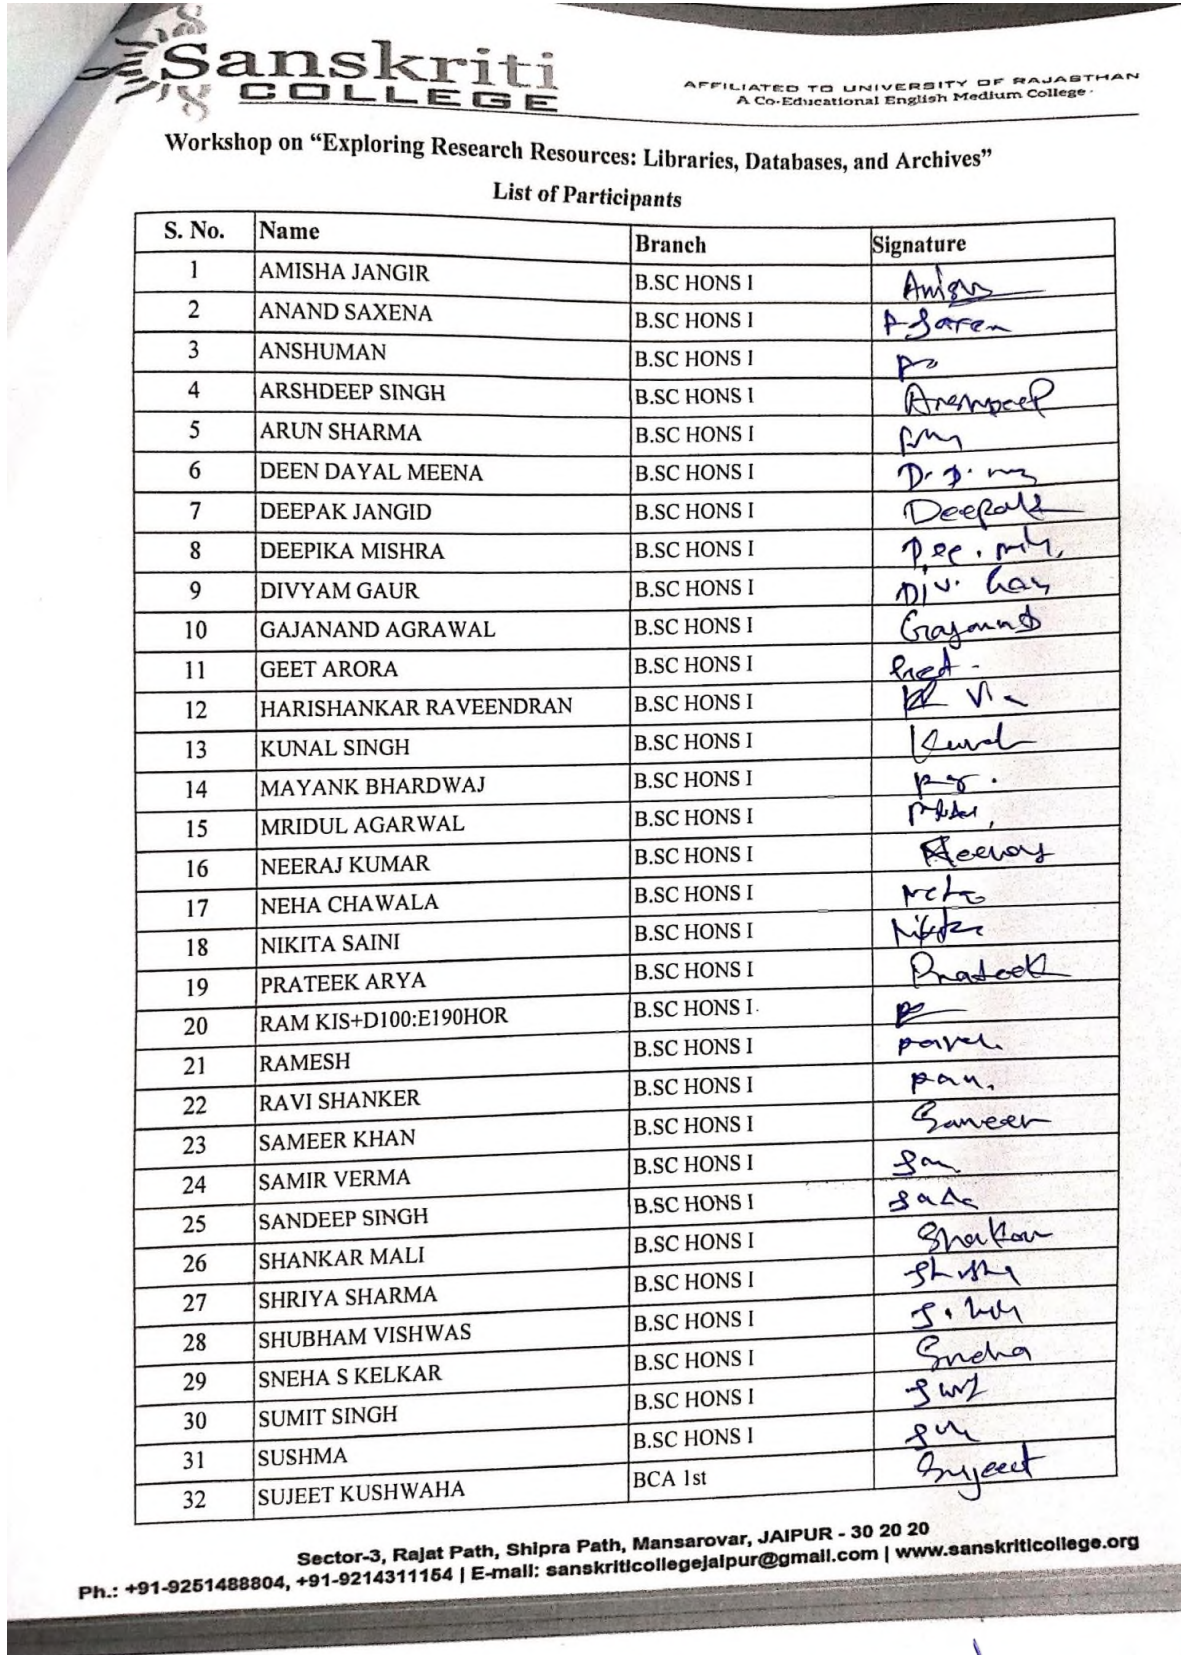 Sanskriti
COLLEGE
AFFILIATED TO UNIVERSITY OF RAJASTHAN
A Co-Educational English Medium College
Workshop on “Exploring Research Resources: Libraries, Databases, and Archives”
List of Participants
S. No. Name Branch Signature
1 AMISHA JANGIR B.SC HONS I
2 ANAND SAXENA B.SC HONS I
3 ANSHUMAN B.SC HONS I
4 ARSHDEEP SINGH B.SC HONS I
5 ARUN SHARMA B.SC HONS I
6 DEEN DAYAL MEENA B.SC HONS I
7 DEEPAK JANGID B.SC HONS I Deepak
8 DEEPIKA MISHRA B.SC HONS I
9 DIVYAM GAUR B.SC HONS I
10 GAJANAND AGRAWAL B.SC HONS I
11 GEET ARORA B.SC HONS I
12 HARISHANKAR RAVEENDRAN B.SC HONS I
13 KUNAL SINGH B.SC HONS I
14 MAYANK BHARDWAJ B.SC HONS I
15 MRIDUL AGARWAL B.SC HONS I
16 NEERAJ KUMAR B.SC HONS I
17 NEHA CHAWALA B.SC HONS I
18 NIKITA SAINI B.SC HONS I
19 PRATEEK ARYA B.SC HONS I Prateek
20 RAM KIS+D100:E190HOR B.SC HONS I
21 RAMESH B.SC HONS I
22 RAVI SHANKER B.SC HONS I
23 SAMEER KHAN B.SC HONS I Sameer
24 SAMIR VERMA B.SC HONS I
25 SANDEEP SINGH B.SC HONS I
26 SHANKAR MALI B.SC HONS I
27 SHRIYA SHARMA B.SC HONS I
28 SHUBHAM VISHWAS B.SC HONS I
29 SNEHA S KELKAR B.SC HONS I Sneha
30 SUMIT SINGH B.SC HONS I
31 SUSHMA B.SC HONS I
32 SUJEET KUSHWAHA BCA 1st Sujeet
Sector-3, Rajat Path, Shipra Path, Mansarovar, JAIPUR - 30 20 20
Ph.: +91-9251488804, +91-9214311154 | E-mail: sanskriticollegejaipur@gmail.com | www.sanskriticollege.org